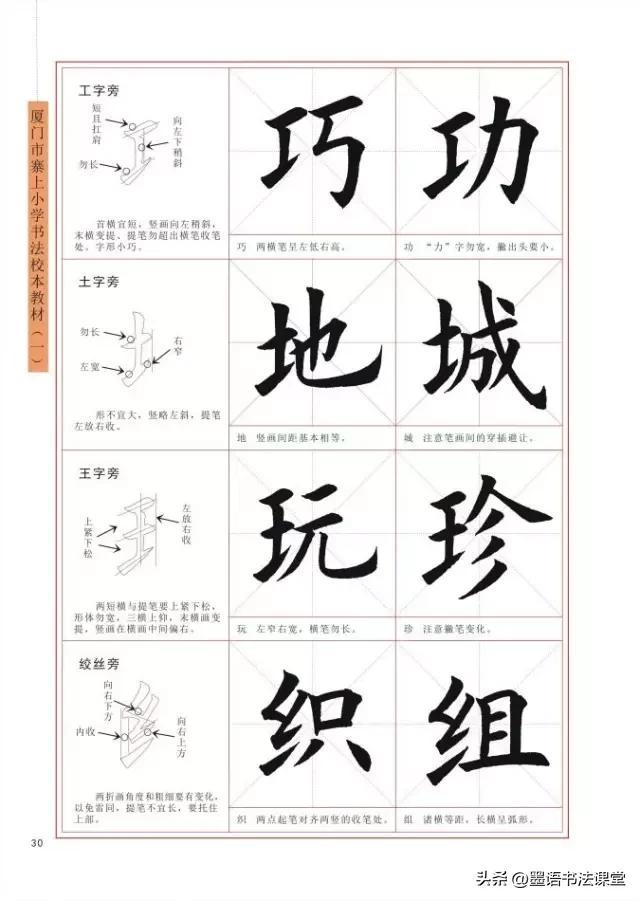 厦门市寨上小学书法校本教材（一）
工字旁
短且扛肩
向左下稍斜
勿长
首横宜短，竖画向左稍斜，
末横变提、提笔勿超出横笔收笔
处。字形小巧。
巧
巧 两横笔呈左低右高。
功
功 “力”字勿宽，撇出头要小。
土字旁
勿长
左宽
右窄
形不宜大，竖略左斜，提笔
左放右收。
地
地 竖画间距基本相等。
城
城 注意笔画间的穿插避让。
王字旁
上紧下松
左放右收
两短横与提笔要上紧下松，
形体勿宽，三横上仰，末横画变
提，竖画在横画中间偏右。
玩
玩 左窄右宽，横笔勿长。
珍
珍 注意撇笔变化。
绞丝旁
向右下方
内收
向右上方
两折画角度和粗细要有变化，
以免雷同，提笔不宜长，要托住
上部。
织
织 两点起笔对齐两竖的收笔处。
组
组 诸横等距，长横呈弧形。
30
头条@墨语书法课堂